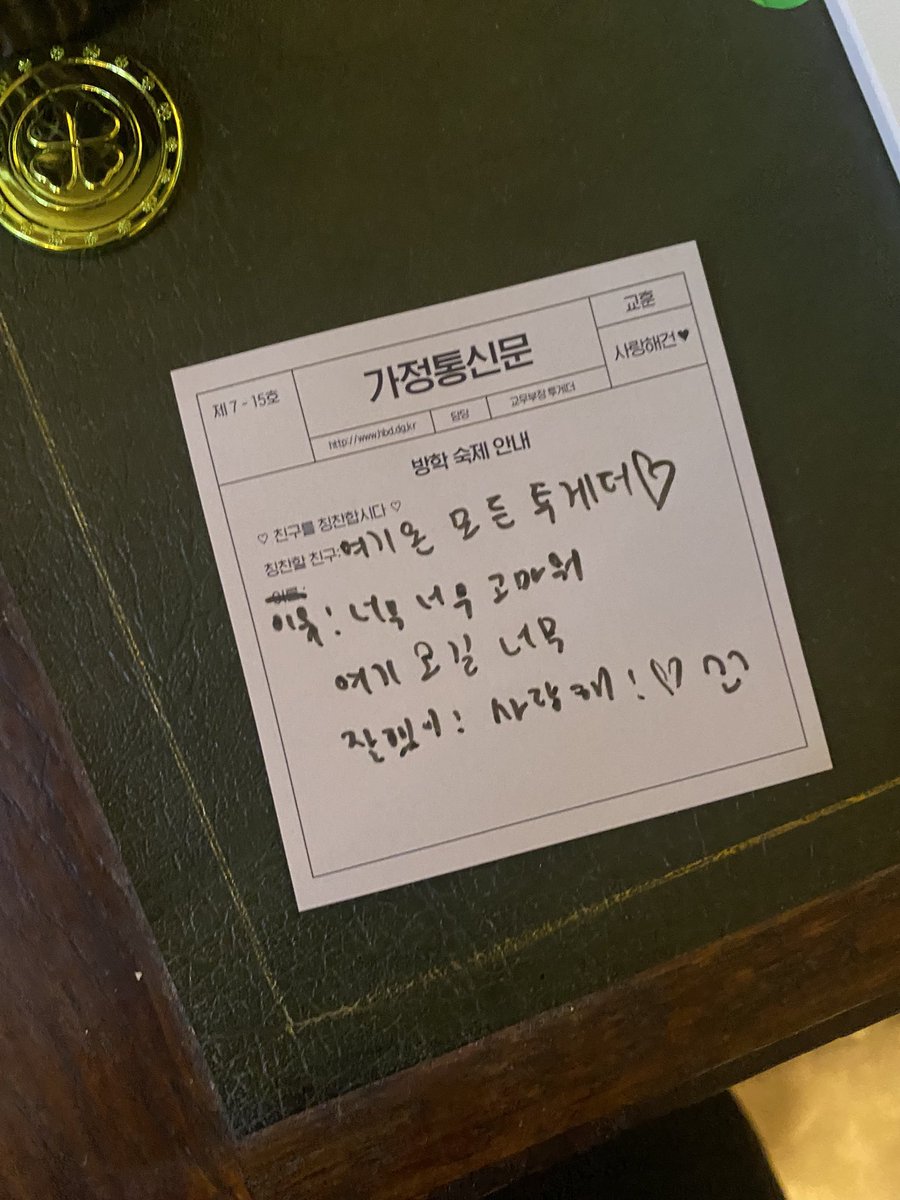 제 7 - 15호
가정통신문
교훈
사랑해건♥
http://www.hbd.dg.kr
담당
교무부장 투게더
방학 숙제 안내
♡ 친구를 칭찬합시다 ♡
칭찬할 친구: 여기온 모든 투게더♡
이름:
이유: 너무 너무 고마워
여기 오길 너무
잘했어! 사랑해! ♡